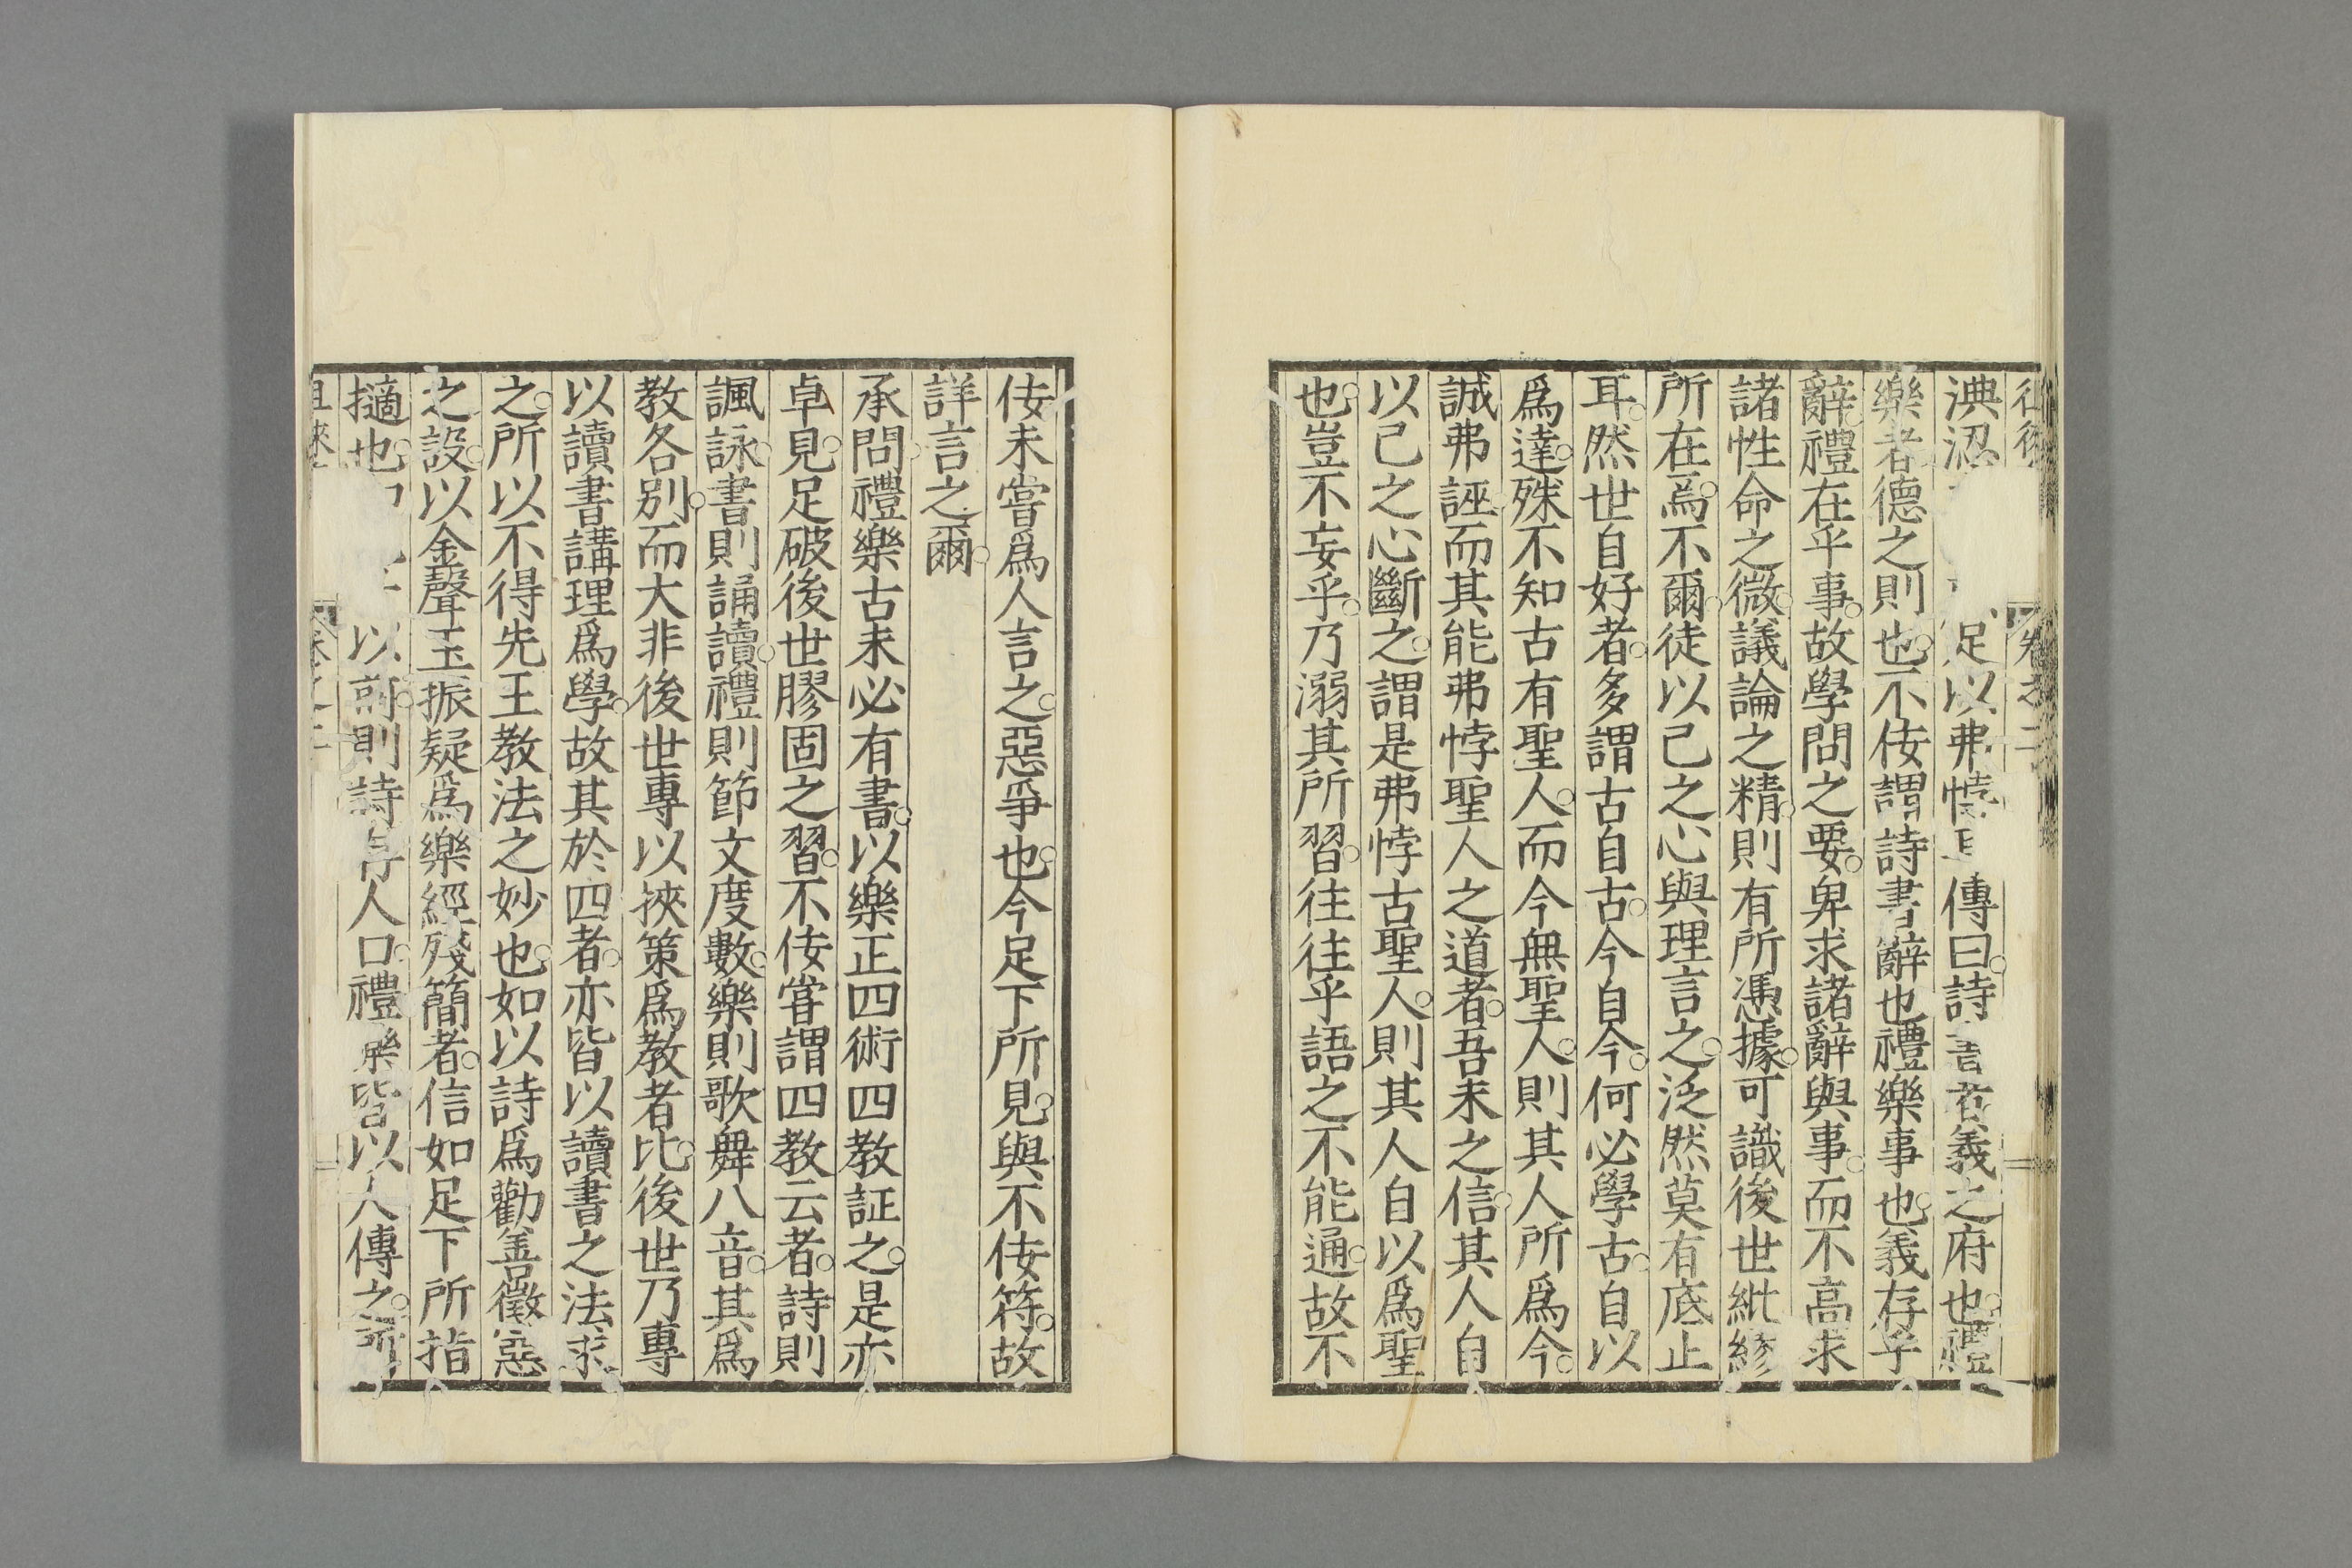 淟涊足以弗悖耳傳曰詩書義之府也禮
樂者德之則也不佞謂詩書辭也禮樂事也義存乎
辭禮在乎事故學問之要卑求諸辭與事而不高求
諸性命之微議論之精則有所憑據可識後世紕繆
所在焉不爾徒以己之心與理言之泛然莫有底止
耳然世自好者多謂古自古今自今何必學古自以
爲達殊不知古有聖人而今無聖人則其人所爲今
誠弗誣而其能弗悖聖人之道者吾未之信其人自
以己之心斷之謂是弗悖古聖人則其人自以爲聖
也豈不妄乎乃溺其所習往往乎語之不能通故不
佞未嘗爲人言之惡爭也今足下所見與不佞符故
詳言之爾
承問禮樂古未必有書以樂正四術四教証之是亦
卓見足破後世膠固之習不佞嘗謂四教云者詩則
諷詠書則誦讀禮則節文度數樂則歌舞八音其爲
教各別而大非後世專以挾策爲教者比後世乃專
以讀書講理爲學故其於四者亦皆以讀書之法求
之所以不得先王教法之妙也如以詩爲勸善懲惡
之設以金聲玉振疑爲樂經殘簡者信如足下所指
擿也以前則詩存人口禮樂皆以人傳之所